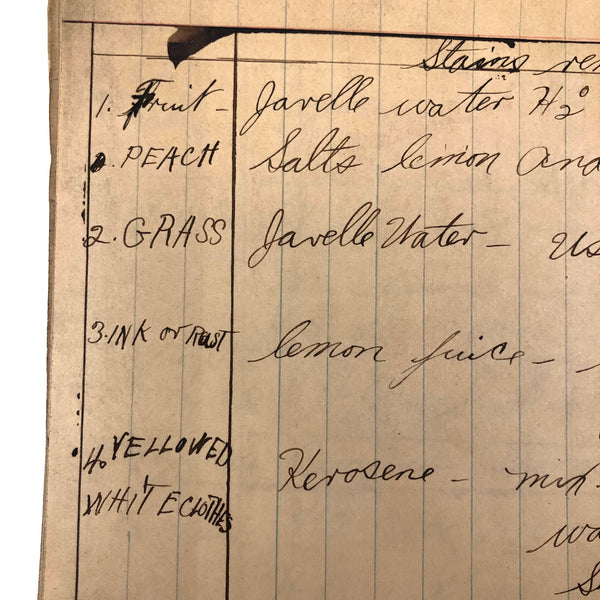 Stains rem
1. Fruit - Javelle water H2O
. PEACH Salts lemon and
2. GRASS Javelle Water - Us
3. INK or Rust lemon juice -
4. YELLOWED Kerosene - mix
WHITE CLOTHES
wa
S